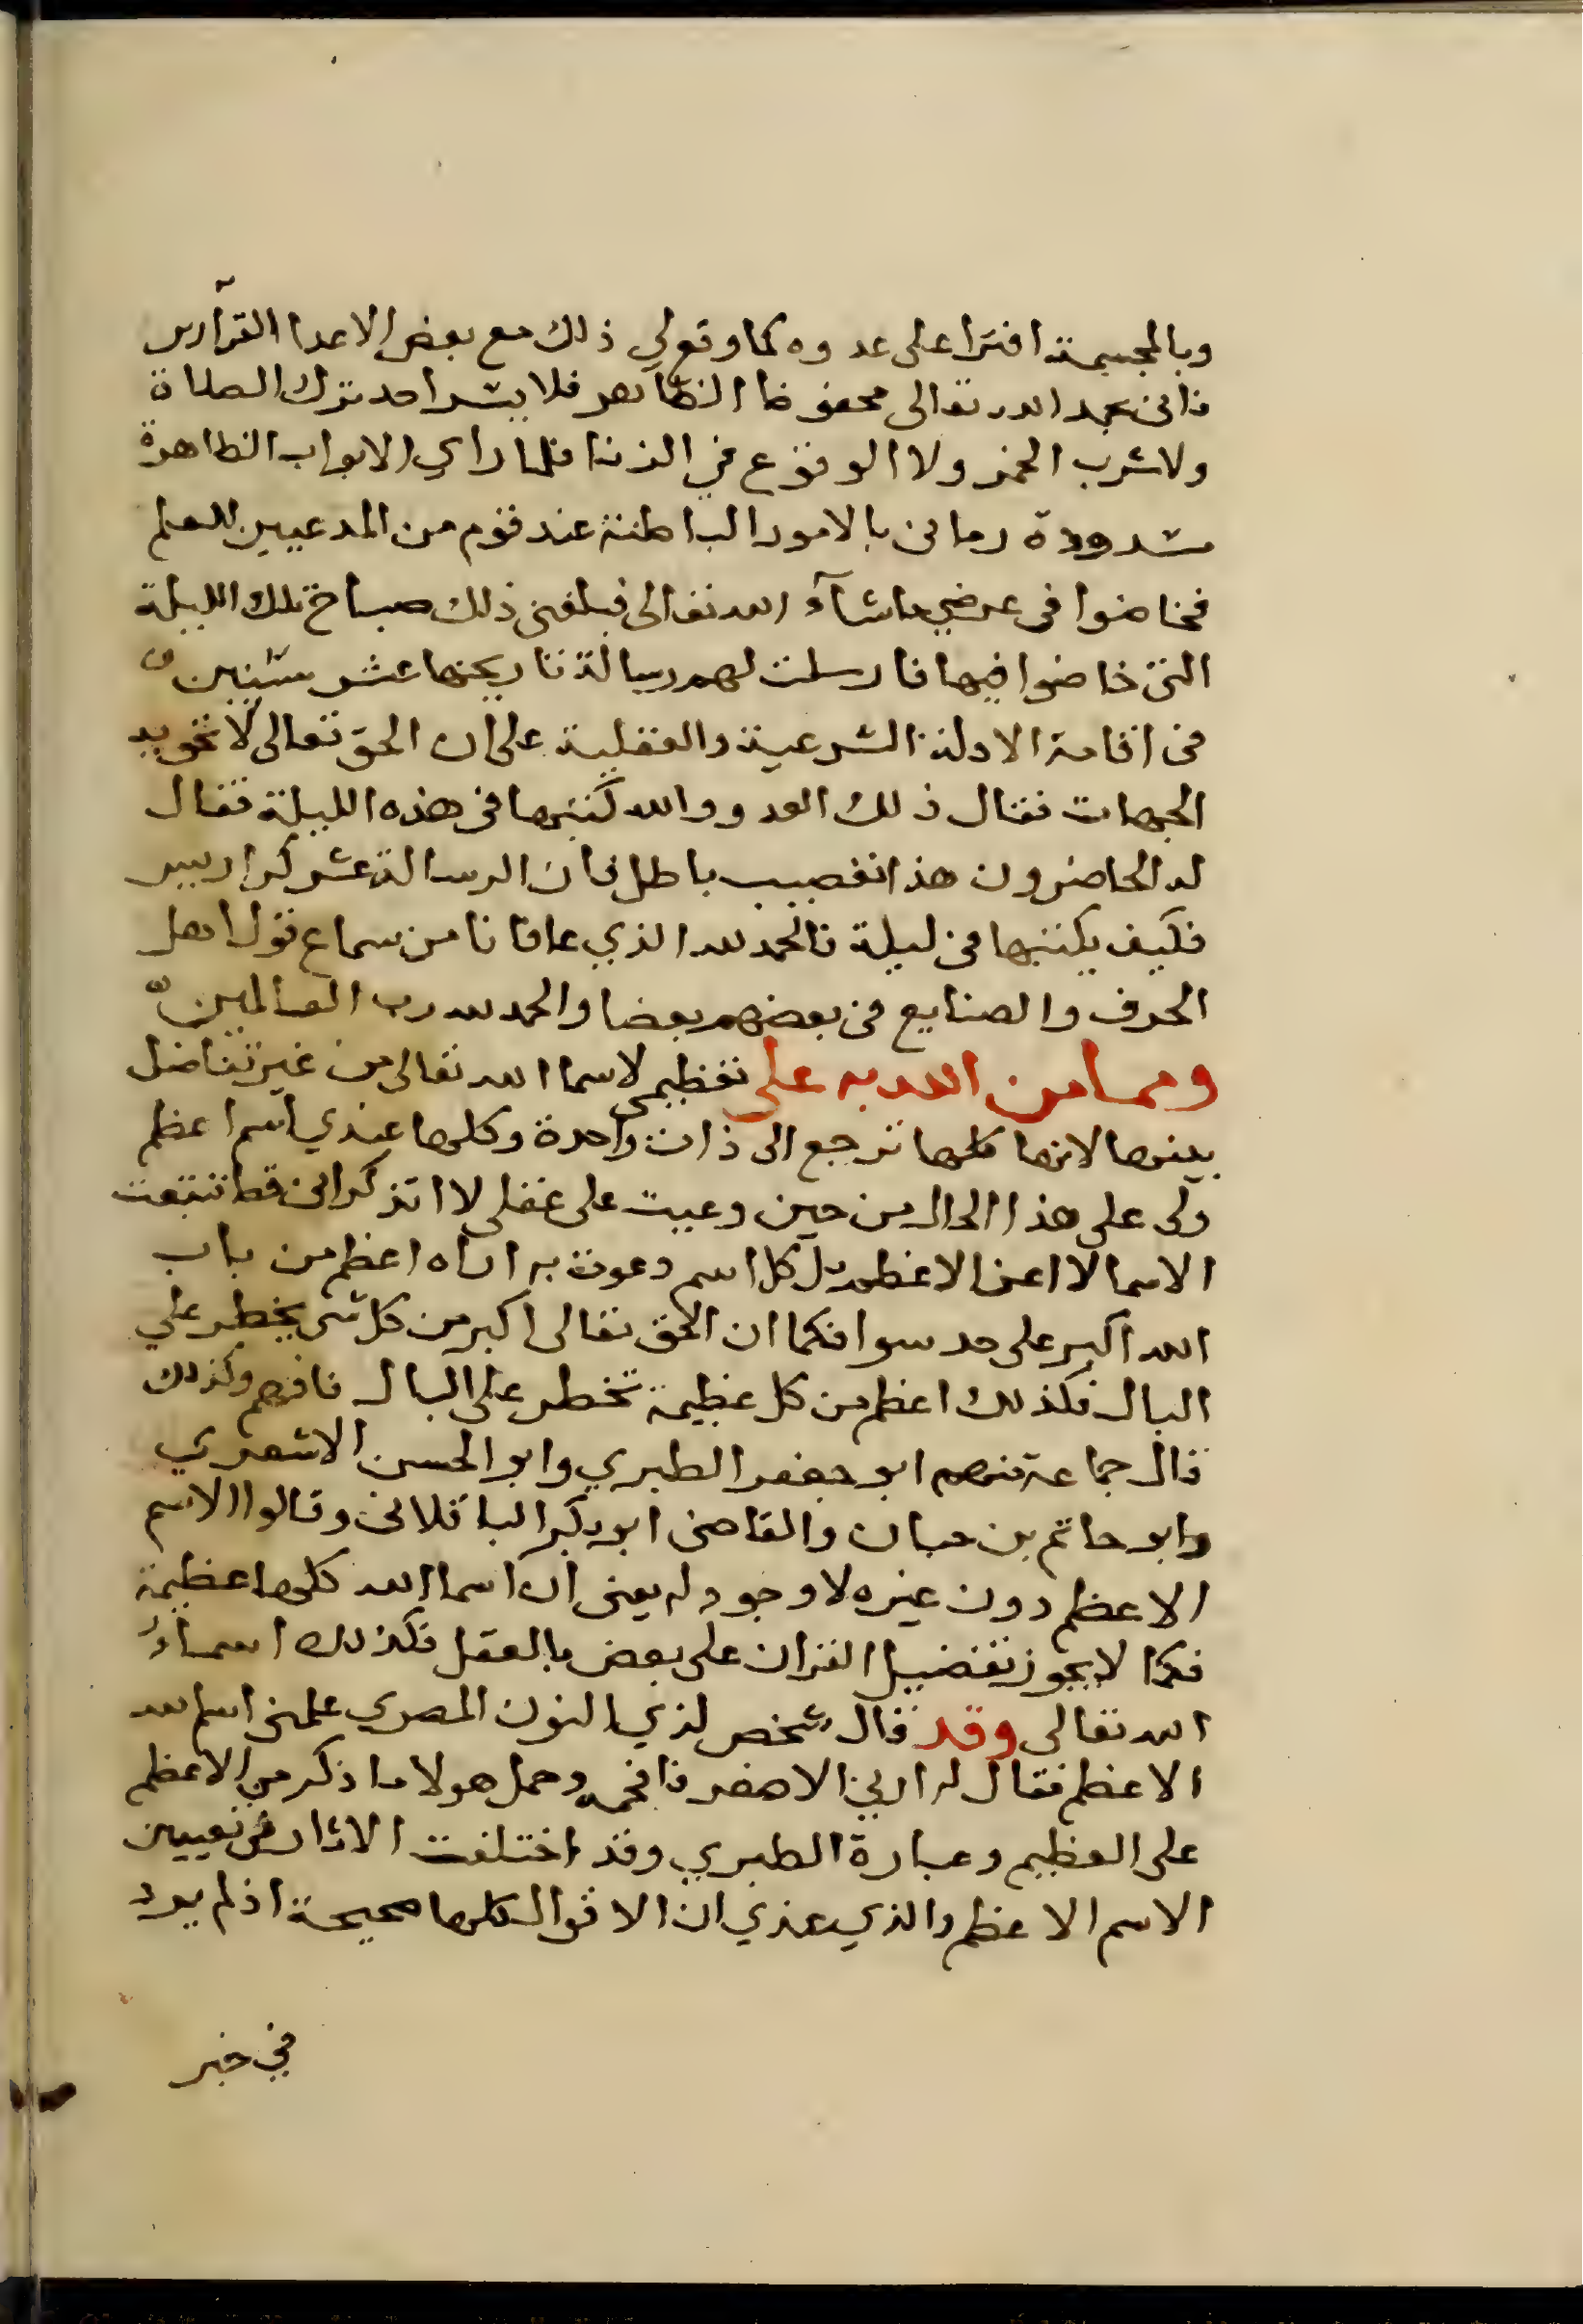 وبالمجسمة افترا على عدوه كما وقع لي ذلك مع بعض الاعدا
فاني بحمد الله تعالى محفوظ الظاهر فلا يشهد احد بترك الصلاة
ولا شرب الخمر ولا الوقوع في الزنا فلما راي الابواب الظاهرة
مشدودة رماني بالامور الباطنة عند قوم من المدعيين للعلم
فخاضوا في عرضي ماشآء الله تعالى فبلغني ذلك صباح تلك الليلة
التي خاضوا فيها فارسلت لهم رسالة تاريخها عشر سنين
في اقامة الادلة الشرعية والعقلية على ان الحق تعالى لا تحويه
الجهات فقال ذلك العدو والله كتبها في هذه الليلة فقال
له الحاضرون هذا تعصب باطل فان الرسالة عشر كراريس
فكيف يكتبها في ليلة فالحمد لله الذي عافانا من سماع قول اهل
الحرف والصنايع في بعضهم بعضا والحمد لله رب العالمين
ومما من الله به على تعظيمي لاسما الله تعالى من غير تفاضل
بينها لانها كلها ترجع الى ذات واحدة وكلها عندي اسم اعظم
ولى على هذا الحال من حين وعيت على عقلى لا اتذكر انى قط تتبعت
الاسما لا اعرف الاعظم بل كل اسم دعوت به اراه اعظم من باب
الله اكبر على حد سوا فكما ان الحق تعالى اكبر من كل شي يخطر علي
البال فكذلك اعظم من كل عظيمة تخطر على البال فافهم وكذلك
قال جماعة منهم ابو جعفر الطبري وابو الحسن الاشعري
وابو حاتم بن حبان والقاضى ابو بكر الباقلانى وقالوا الاسم
الاعظم دون غيره لا وجود له يعنى ان اسما الله كلها عظيمة
فكما لا يجوز تفضيل القران على بعض بالعقل فكذلك اسماؤ
الله تعالى وقد قال شخص لذي النون المصري علمنى اسم الله
الاعظم فقال له ارني الاصغر فافحم وحمل هولا ما ذكر من الاعظم
على العظيم وعبارة الطبري وقد اختلفت الاثار في تعيين
الاسم الاعظم والذي عندي ان الاقوال كلها صحيحة اذ لم يرد
في خبر